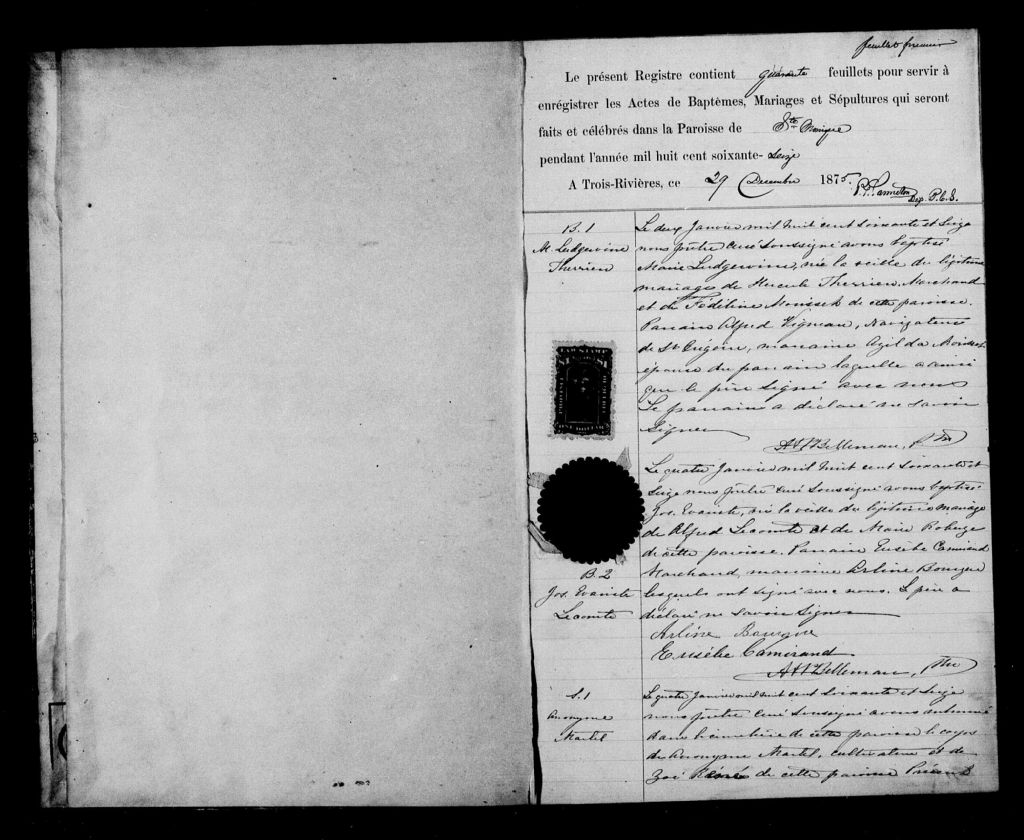 feuillet premier
Le présent Registre contient quarante feuillets pour servir à
enrégistrer les Actes de Baptêmes, Mariages et Sépultures qui seront
faits et célébrés dans la Paroisse de Ste Monique
pendant l'année mil huit cent soixante-Seize
A Trois-Rivières, ce 29 Decembre 1875.
Dep. P.C.S.
B. 1
M. Ludgervine
Therrien
Le deux Janvier mil huit cent soixante et Seize
nous prêtre Curé Soussigné avons baptisé
Marie Ludgervine, née la veille du légitime
mariage de Hercule Therrien, Marchand
et de Fédéline de cette paroisse.
Parrain Alfred Vigneau, Navigateur
de St marraine
épouse du parrain laquelle a ainsi
que le père signé avec nous
Le parrain a déclaré ne savoir
Signer
Ptre
LAW STAMP
ONE DOLLAR
B. 2
Jos. Evariste
Lecomte
Le quatre Janvier mil huit cent soixante et
Seize nous prêtre Curé Soussigné avons baptisé
Jos. Evariste, né la veille du légitime mariage
de Alfred Lecomte et de Marie
de cette paroisse. Parrain Eusèbe Camirand
Marchand, marraine Arline Bourque
lesquels ont signé avec nous. Le père a
déclaré ne savoir Signer
Arline Bourque
Eusèbe Camirand
Ptre
S. 1
Anonyme
Martel
Le quatre Janvier mil huit cent soixante et Seize
nous prêtre Curé Soussigné avons inhumé
dans le cimetière de cette paroisse le corps
de Anonyme Martel, cultivateur et de
Zoé de cette paroisse